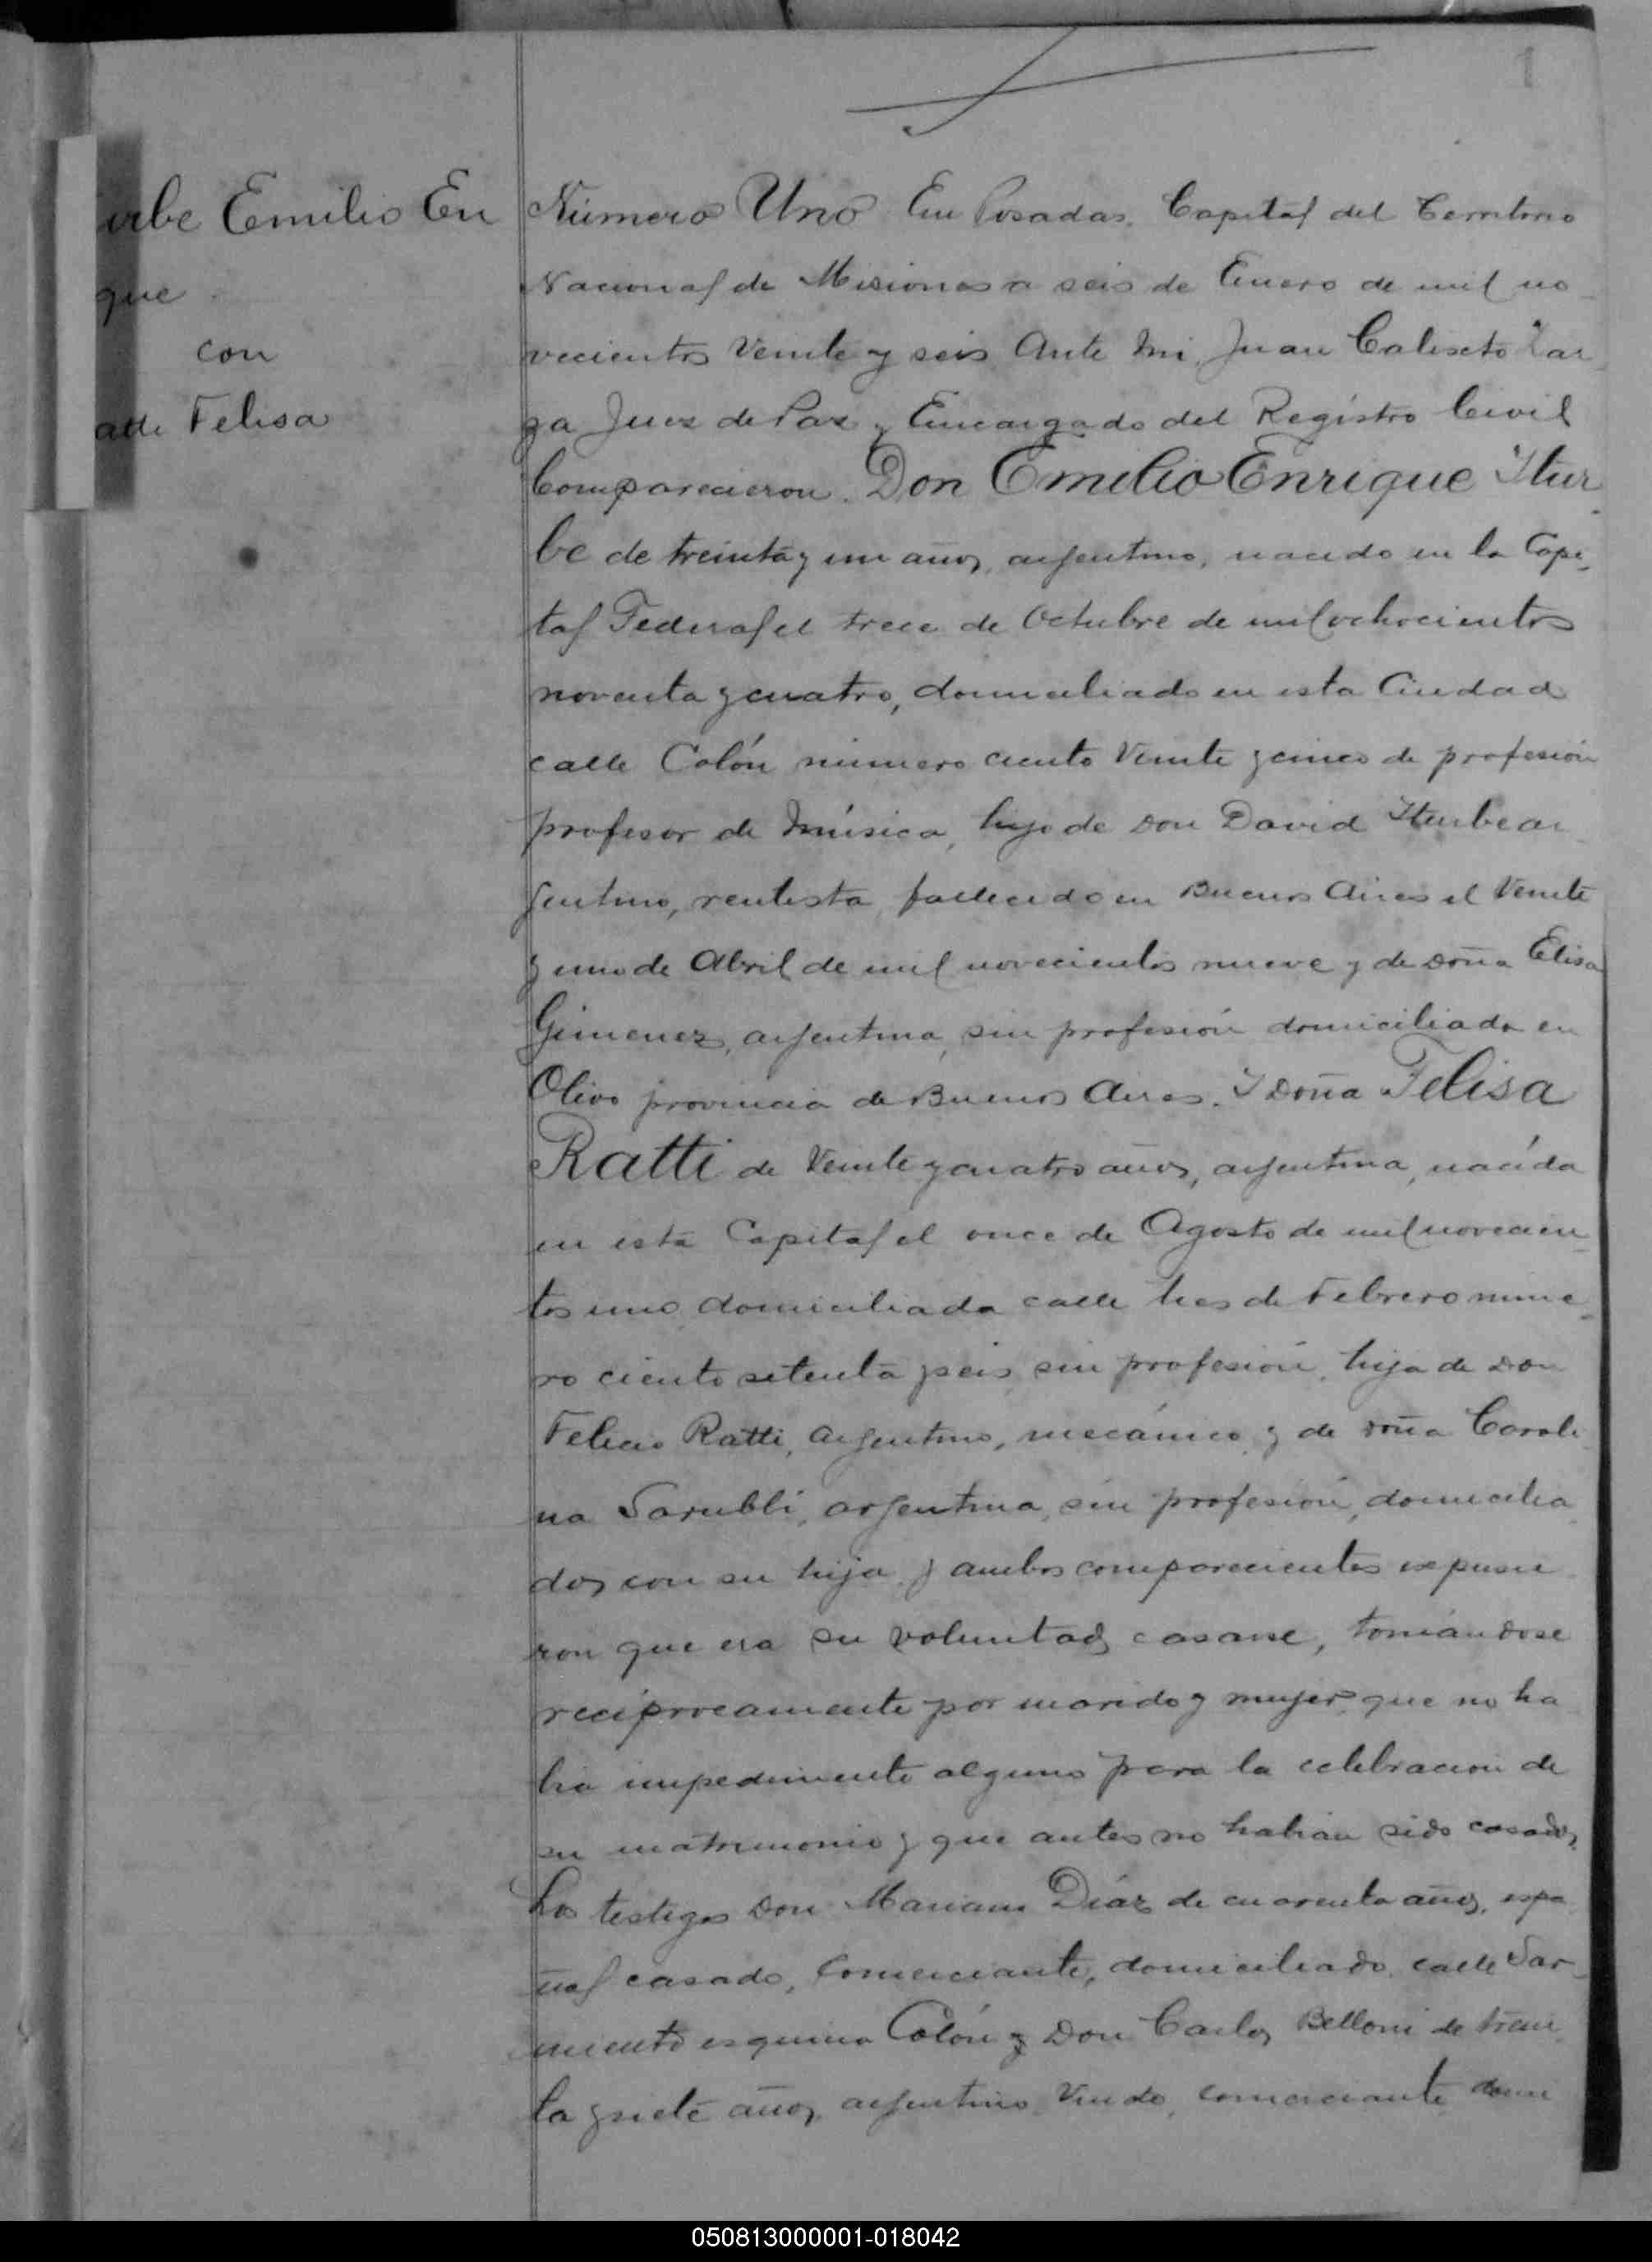 1
urbe Emilio En
que
con
atti Felisa
Número Uno En Posadas, Capital del Territorio
Nacional de Misiones a seis de Enero de mil no
vecientos veinte y seis Ante mi, Juan Calixto Lar
ga Juez de Paz y Encargado del Registro Civil
Comparecieron. Don Emilio Enrique Itur
be de treinta y un años, argentino, nacido en la Capi
tal Federal el trece de Octubre de mil ochocientos
noventa y cuatro, domiciliado en esta Ciudad
calle Colón número ciento veinte y cinco de profesión
profesor de Música, hijo de Don David Iturbe ar
gentino, rentista, fallecido en Buenos Aires el veinte
y uno de Abril de mil novecientos nueve y de doña Elisa
Gimenez, argentina, sin profesión domiciliada en
Olivo provincia de Buenos Aires. Y Doña Felisa
Ratti de veinte y cuatro años, argentina, nacida
en esta Capital el once de Agosto de mil novecien
tos uno, domiciliada calle tres de Febrero núme
ro ciento setenta y seis, sin profesión, hija de Don
Felicio Ratti, argentino, mecánico, y de doña Caroli
na Sarubbi, argentina, sin profesión, domicilia
dos con su hija. y ambos comparecientes expusie
ron que era su voluntad casarse, tomándose
reciprocamente por marido y mujer, que no ha
bia impedimento alguno para la celebración de
su matrimonio y que antes no habian sido casados,
Los testigos Don Mariano Díaz de cuarenta años, espa
ñol casado, comerciante, domiciliado calle Sar
miento esquina Colón y Don Carlos Belloni de trein
ta y siete años argentino, viudo, comerciante domi
050813000001-018042